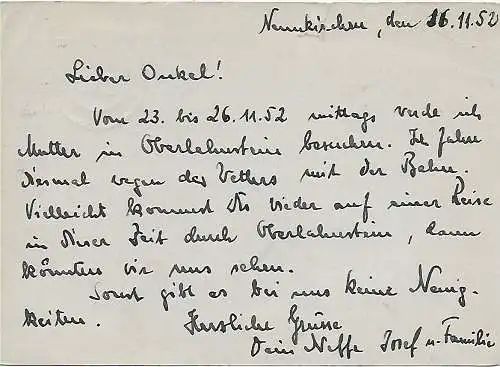 Neunkirchen, den 16.11.52
Lieber Onkel!
Vom 23. bis 26.11.52 mittags werde ich
Mutter in Oberlahnstein besuchen. Ich fahre
diesmal wegen des Wetters mit der Bahn.
Vielleicht kommst Du wieder auf einer Reise
in dieser Zeit durch Oberlahnstein, dann
könnten wir uns sehen.
Sonst gibt es bei uns keine Neuig-
keiten. Herzliche Grüsse
Dein Neffe Josef u. Familie